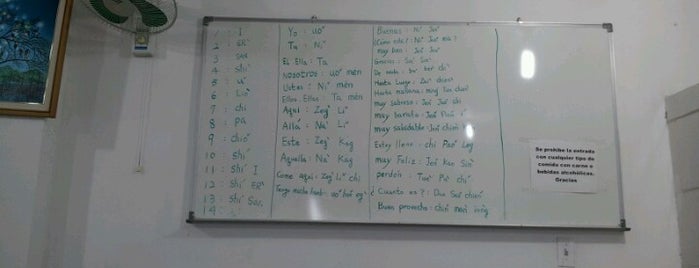 1 : I
2 : ER
3 : San
4 : Shi
5 : Wu
6 : Lio
7 : chi
8 : Pa
9 : chio
10 : Shi
11 : Shi I
12 : Shi ER
13 : Shi San
14 :
Yo : uo
Tu : Ni
El Ella : Ta
Nosotros : uo men
Ustes : Ni men
Ellos Ellas : Ta men
Aqui : Zeg Li
Allá : Na Li
Este : Zeg Kag
Aquella : Na Kag
Come aqui : Zeg Li chi
Tengo mucha hambre : uo
Buenas : Ni Jao
¿Cómo esta? : Ni Jao ma?
muy bien : Jao Jao
Gracias : Sie Sie
De nada :
Hasta Luego : Zai chien
Hasta mañana :
muy sabroso : Jao Jao chi
muy barato : Jao
muy saludable : Jao chien
Estoy lleno : chi Pao Log
muy Feliz : Jao Kao Sin
perdón : Tue Pu chi
¿ Cuanto es ? : Duo Sao chien
Buen provecho : chin man iong
Se prohibe la entrada
con cualquier tipo de
comida con carne o
bebidas alcohólicas.
Gracias